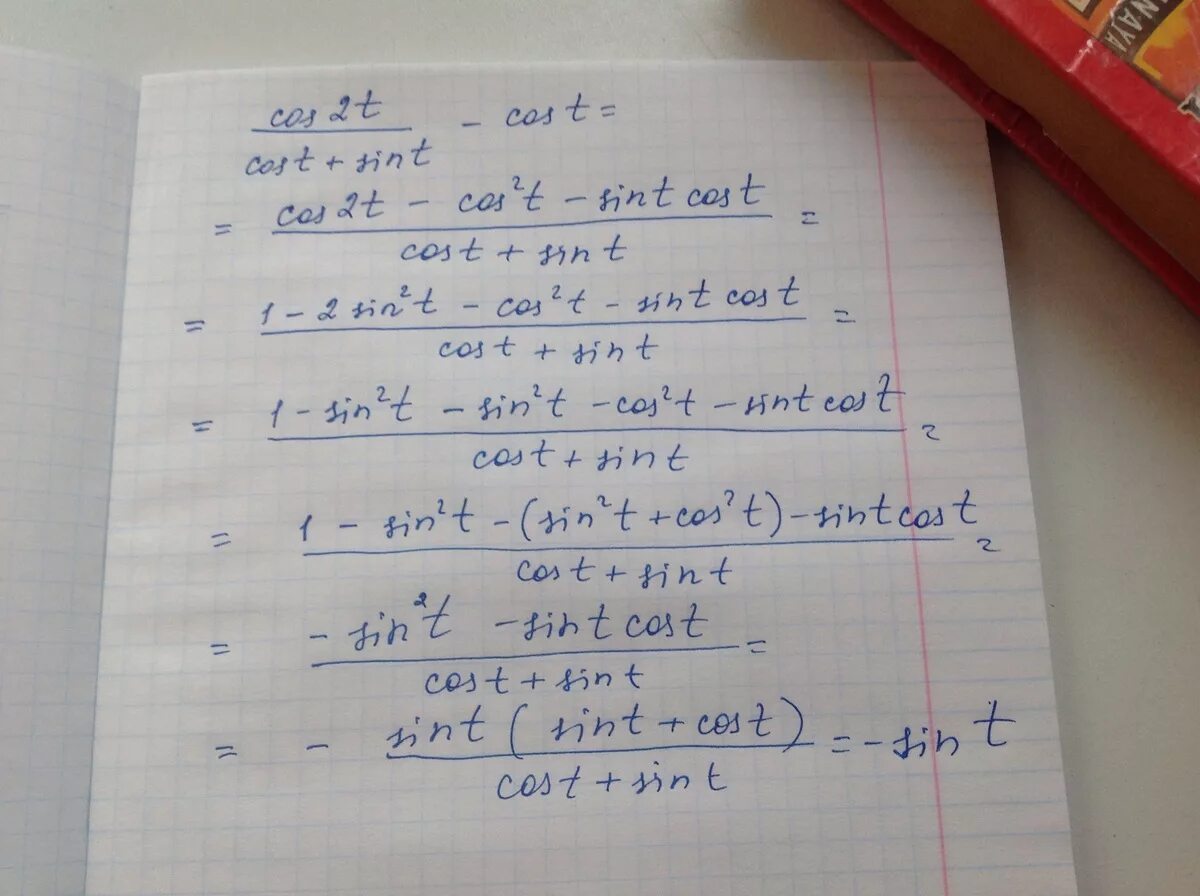 cos2t / cost + sint - cost =
= cos2t - cos²t - sint cost / cost + sint =
= 1 - 2sin²t - cos²t - sint cost / cost + sint =
= 1 - sin²t - sin²t - cos²t - sint cost / cost + sint =
= 1 - sin²t - (sin²t + cos²t) - sint cost / cost + sint =
= - sin²t - sint cost / cost + sint =
= - sint ( sint + cost) / cost + sint = - sint
NAYA